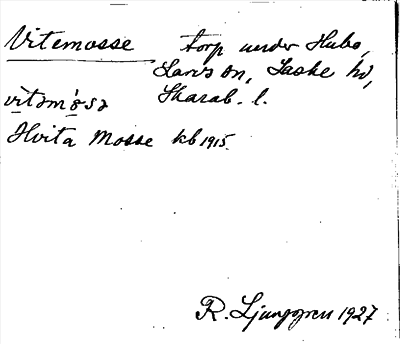 Vitemosse torp under Hubo,
Larvs sn, Laske hd,
vìtəmʹɵsə Skarab. l.
Hvita Mosse kb 1915.
R. Ljunggren 1927